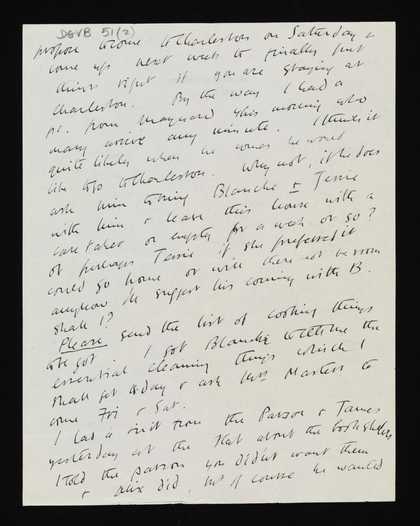 DGVB 51(2)
propose to come to Charleston on Saturday &
come up next week to finally put
things right if you are staying at
Charleston. By the way I had a
pc. from Maynard this morning who
may arrive any minute. I think it
quite likely when he comes he would
like to go to Charleston. Why not, if he does
ask him to bring Blanche & Jessie
with him & leave this house with a
caretaker or empty for a week or so?
or perhaps Jessie if she preferred it
could go home or will there not be room
anyhow to suggest his coming with B.
shall I?
Please send the list of cooking things
to be got. I got Blanche to tell me the
essential cleaning things which I
shall get today & ask Mrs Masters to
come Fri & Sat.
I had a visit from the Parson & James
yesterday at the flat about the bookshelves
I told the parson you didn't want them
& Alix did, but of course he wanted